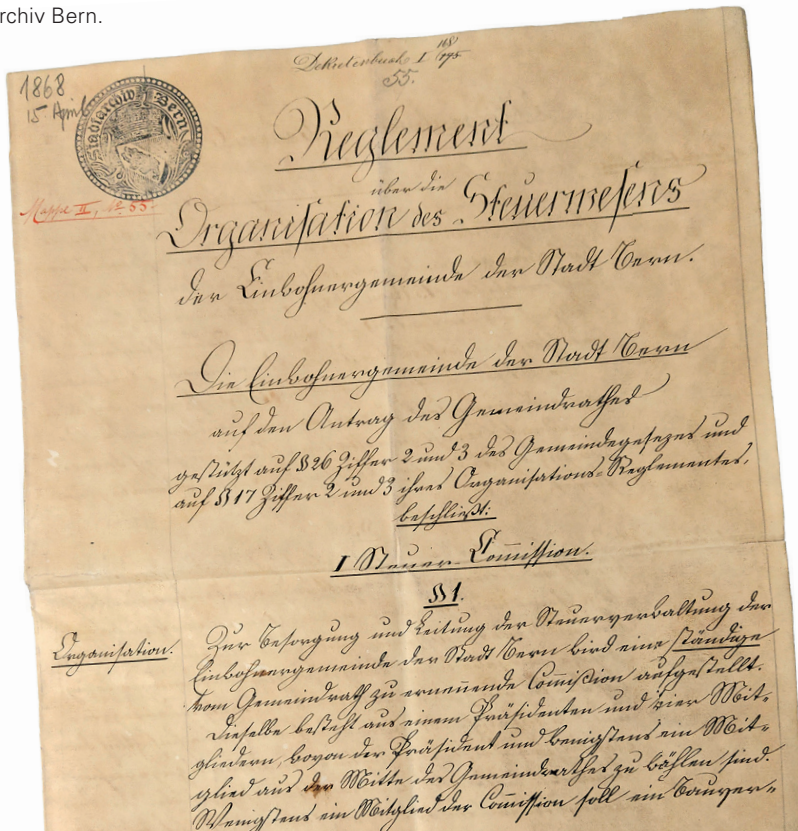 rchiv Bern.
Dekretenbuch I 168/195
55.
1868
15 April
Stadtarchiv Bern
Mappe II, No 55.
Reglement
über die
Organisation des Steuerwesens
der Einwohnergemeinde der Stadt Bern.
Die Einwohnergemeinde der Stadt Bern
auf den Antrag des Gemeindrathes
gestützt auf § 26 Ziffer 2 und 3 des Gemeindegesezes und
auf § 17 Ziffer 2 und 3 ihres Organisations-Reglementes,
beschließt:
I Steuer-Commission.
§ 1.
Organisation.
Zur Besorgung und Leitung der Steuerverwaltung der
Einwohnergemeinde der Stadt Bern wird eine ständige
vom Gemeindrath zu ernennende Commißion aufgestellt.
Dieselbe besteht aus einem Präsidenten und vier Mit-
gliedern, wovon der Präsident und wenigstens ein Mit-
glied aus der Mitte des Gemeindrathes zu wählen sind.
Wenigstens ein Mitglied der Commission soll ein Bauver-